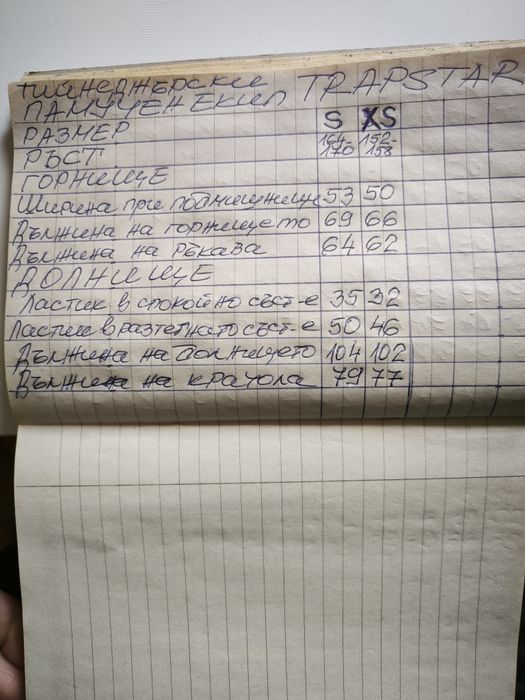 тийнеджърски TRAPSTAR
ПАМУЧЕН ЕКИП
РАЗМЕР S XS
РЪСТ 164-170 152-158
ГОРНИЩЕ
Ширина при подмишници 53 50
Дължина на горнището 69 66
Дължина на ръкава 64 62
ДОЛНИЩЕ
Ластик в спокойно съст-е 35 32
Ластик в разтегнато съст-е 50 46
Дължина на долнището 104 102
Дължина на крачола 79 77